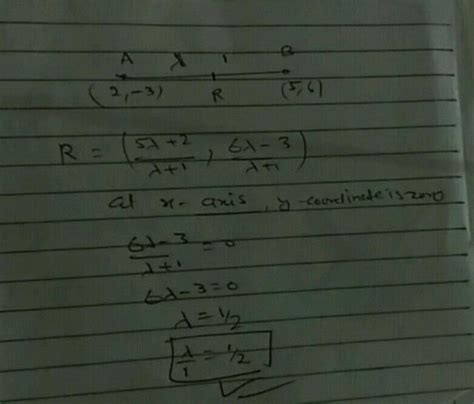 A λ 1 B
(2,-3) R (5,6)
R = (5λ+2/λ+1 , 6λ-3/λ+1)
at x-axis, y-coordinate is zero
6λ-3/λ+1 = 0
6λ-3=0
λ = 1/2
λ/1 = 1/2